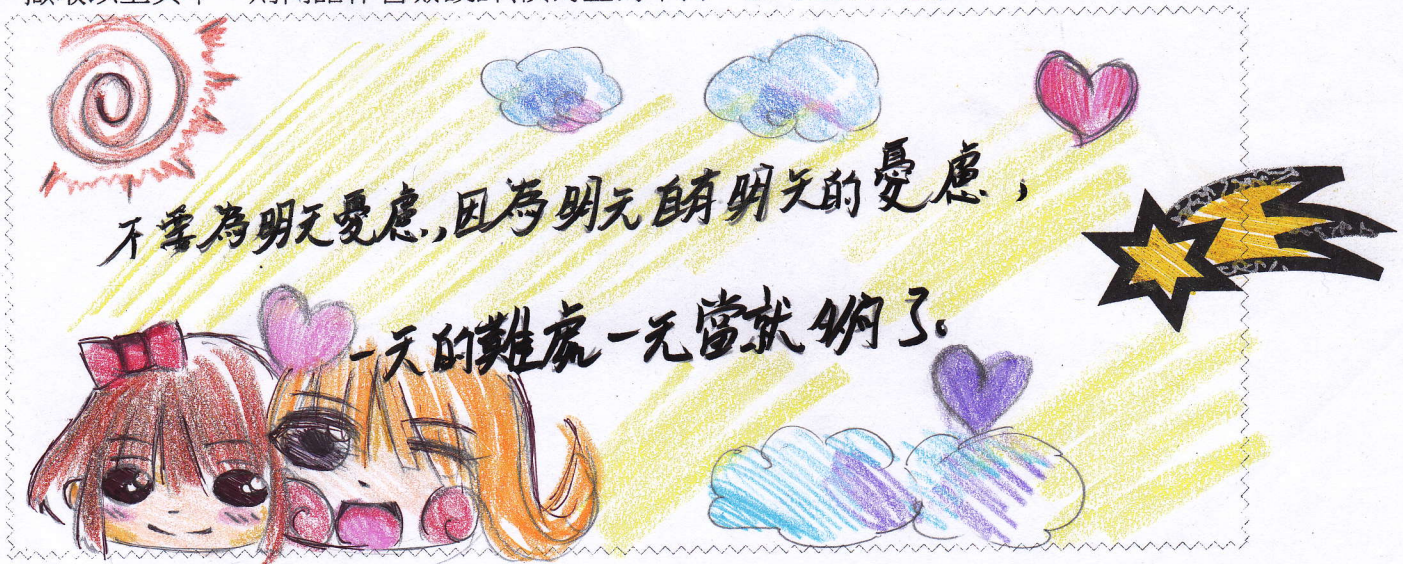 不要為明天憂慮,因為明天自有明天的憂慮,
一天的難處一天當就夠了。